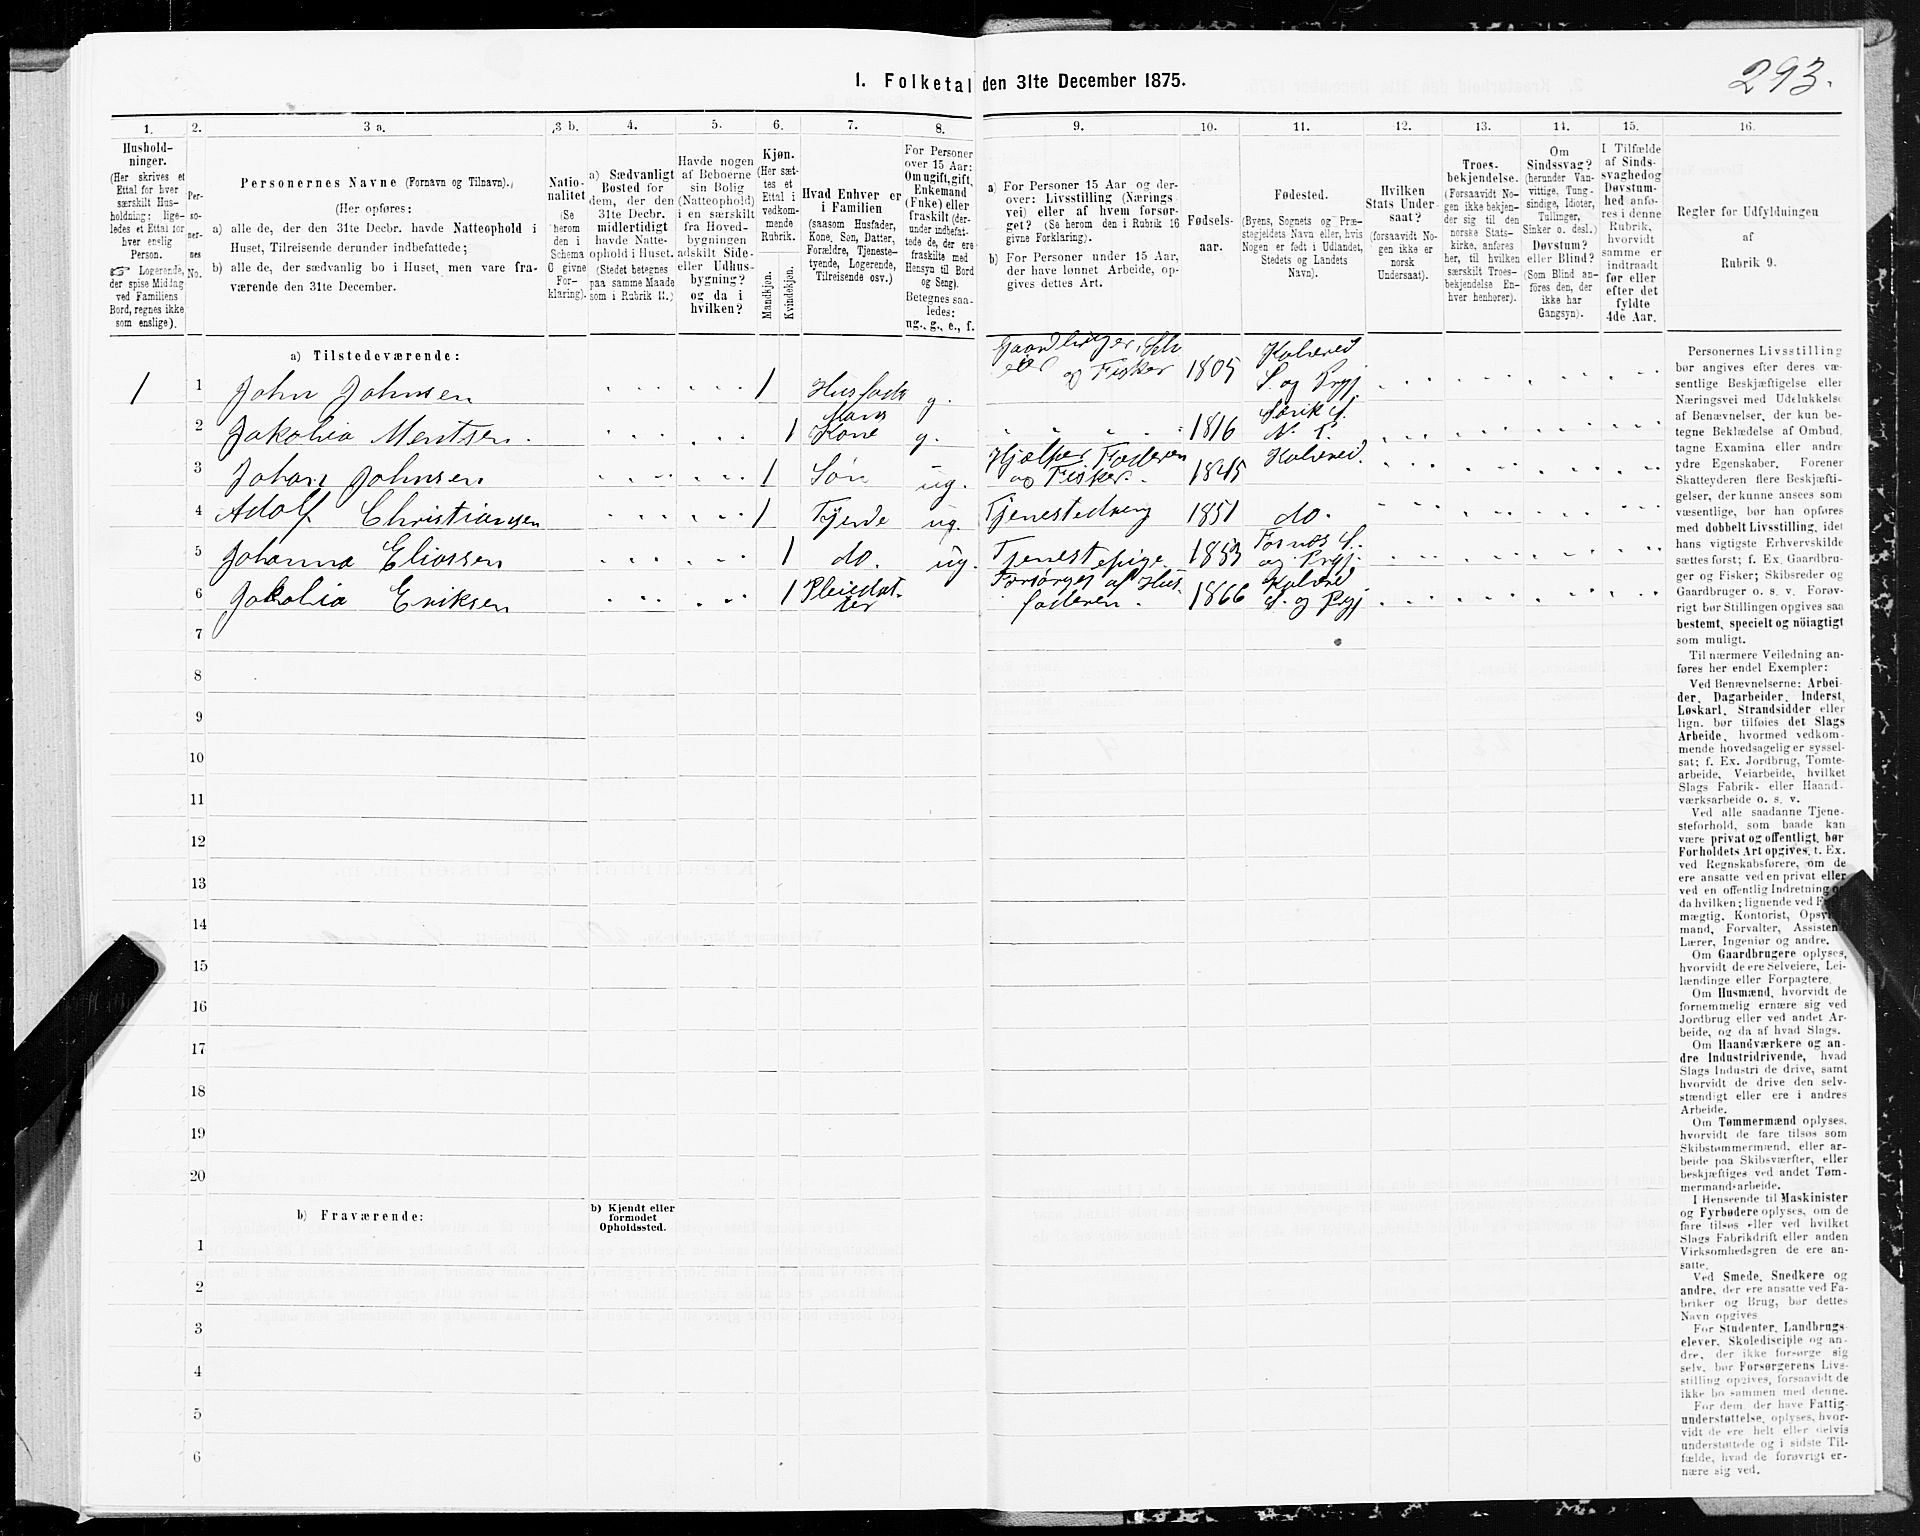 293.
I. Folketal den 31te December 1875.
1.
2.
3 a.
3 b.
4.
5.
6.
7.
8.
9.
10.
11.
12.
13.
14.
15.
16.
Hushold-
ninger.
(Her skrives et
Ettal for hver
særskilt Hus-
holdning; lige-
ledes et Ettal for
hver enslig
Person.
☞ Logerende,
der spise Middag
ved Familiens
Bord, regnes ikke
som enslige).
Per-
so-
ner-
nes
No.
Personernes Navne (Fornavn og Tilnavn).
(Her opføres:
a) alle de, der den 31te Decbr. havde Natteophold i
Huset, Tilreisende derunder indbefattede;
b) alle de, der sædvanlig bo i Huset, men vare fra-
værende den 31te December.
Natio-
nalitet
(Se
herom
den i
Schema
G givne
For-
klaring).
a) Sædvanligt
Bosted for
dem, der den
31te Decbr.
midlertidigt
havde Natte-
ophold i Huset.
(Stedet betegnes
paa samme Maade
som i Rubrik 11.)
Havde nogen
af Beboerne
sin Bolig
(Natteophold)
i en særskilt
fra Hoved-
bygningen
adskilt Side-
eller Udhus-
bygning?
og da i
hvilken?
Kjøn.
(Her sæt-
tes et
Ettal i
vedkom-
mende
Rubrik.
Mandkjøn.
Kvindekjøn.
Hvad Enhver er
i Familien
(saasom Husfader,
Kone, Søn, Datter,
Forældre, Tjeneste-
tyende, Logerende,
Tilreisende osv.)
For Personer
over 15 Aar:
Om ugift, gift,
Enkemand
(Enke) eller
fraskilt (der-
under indbefat-
tede de, der ere
fraskilte med
Hensyn til Bord
og Seng).
Betegnes saa-
ledes:
ug., g., e., f.
a) For Personer 15 Aar og der-
over: Livsstilling (Nærings
vei) eller af hvem forsør-
get? (Se herom den i Rubrik 16
givne Forklaring).
b) For Personer under 15 Aar,
der have lønnet Arbeide, op-
gives dettes Art.
Fødsels-
aar.
Fødested.
(Byens, Sognets og Præ-
stegjeldets Navn eller, hvis
Nogen er født i Udlandet,
Stedets og Landets
Navn).
Hvilken
Stats Under-
saat?
(forsaavidt No-
gen ikke er
norsk
Undersaat).
Troes-
bekjendelse.
(Forsaavidt No-
gen ikke bekjen-
der sig til den
norske Stats-
kirke, anføres
her, til hvilken
særskilt Troes-
bekjendelse En-
hver henhører).
Om
Sindssvag?
(herunder Van-
vittige, Tung-
sindige, Idioter,
Tullinger,
Sinker o. desl.)
Døvstum?
eller Blind?
(Som Blind an-
føres den, der
ikke har
Gangsyn).
I Tilfælde
af Sinds-
svaghed og
Døvstum-
hed anfø-
res i denne
Rubrik,
hvorvidt
samme er
indtraadt
før eller
efter det
fyldte
4de Aar.
Regler for Udfyldningen
af
Rubrik 9.
a) Tilstedeværende:
1 1 John Johnsen 1 g. og Fisker 1805 S. og Prgj
2 Jakobia Mentsen. 1 Mans Kone g. 1816
3 Johan Johnsen 1 Søn ug. Hjælper Faderen og Fisker. 1845
4 Adolf Christiansen 1 Tjende ug. 1851 do.
5 Johanna Eliassen 1 do. ug. Tjenestepige 1853 og Prgj.
6 Jakobia Eriksen 1 Pleiedat-ter Forsørges af Hus-faderen. 1866 S. og Prgj
7
8
9
10
11
12
13
14
15
16
17
18
19
20
b) Fraværende:
b) Kjendt eller
formodet
Opholdssted.
1
2
3
4
5
6
Personernes Livsstilling
bør angives efter deres væ-
sentlige Beskjæftigelse eller
Næringsvei med Udelukkelse
af Benævnelser, der kun be-
tegne Beklædelse af Ombud,
tagne Examina eller andre
ydre Egenskaber. Forener
Skatteyderen flere Beskjæfti-
gelser, der kunne ansees som
væsentlige, bør han opføres
med dobbelt Livsstilling, idet
hans vigtigste Erhvervskilde
sættes først; f. Ex. Gaardbru-
ger og Fisker; Skibsreder og
Gaardbruger o. s. v. Forøv-
rigt bør Stillingen opgives saa
bestemt, specielt og nöiagtigt
som muligt.
Til nærmere Veiledning an-
føres her endel Exempler:
Ved Benævnelserne: Arbei-
der, Dagarbeider, Inderst,
Løskarl, Strandsidder eller
lign. bør tilføies det Slags
Arbeide, hvormed vedkom-
mende hovedsagelig er syssel-
sat; f. Ex. Jordbrug, Tomte-
arbeide, Veiarbeide, hvilket
Slags Fabrik- eller Haand-
værksarbeide o. s. v.
Ved alle saadanne Tjene-
steforhold, som baade kan
være privat og offentligt, bør
Forholdets Art opgives, t. Ex.
ved Regnskabsførere, om de
ere ansatte ved en privat eller
ved en offentlig Indretning og
da hvilken; lignende ved
mægtig, Kontorist,
mand, Forvalter,
Lærer, Ingeniør og andre.
Om Gaardbrugere oplyses,
hvorvidt de ere Selveiere, Lei-
lændinge eller Forpagtere.
Om Husmænd, hvorvidt de
fornemmelig ernære sig ved
Jordbrug eller ved andet Ar-
beide, og da af hvad Slags.
Om Haandværkere og an-
dre Industridrivende, hvad
Slags Industri de drive, samt
hvorvidt de drive den selv-
stændigt eller ere i andres
Arbeide.
Om Tømmermænd oplyses,
hvorvidt de fare tilsøs som
Skibstømmermænd, eller ar-
beide paa Skibsværfter, eller
beskjæftiges ved andet Tøm-
mermandsarbeide.
I Henseende til Maskinister
og Fyrbødere oplyses, om de
fare tilsøs eller ved hvilket
Slags Fabrikdrift eller anden
Virksomhedsgren de ere an-
satte.
Ved Smede, Snedkere og
andre, der ere ansatte ved Fa-
briker og Brug, bør dettes
Navn opgives
For Studenter, Landbrugs-
elever, Skoledisciple og an-
dre, der ikke forsørge sig
selv, bør Forsørgerens Livs-
stilling opgives, forsaavidt de
ikke bo sammen med denne.
For dem, der have Fattig-
understøttelse, oplyses, hvor-
vidt de ere helt eller delvis
understøttede og i sidste Til-
fælde, hvad de forøvrigt er-
nære sig ved.